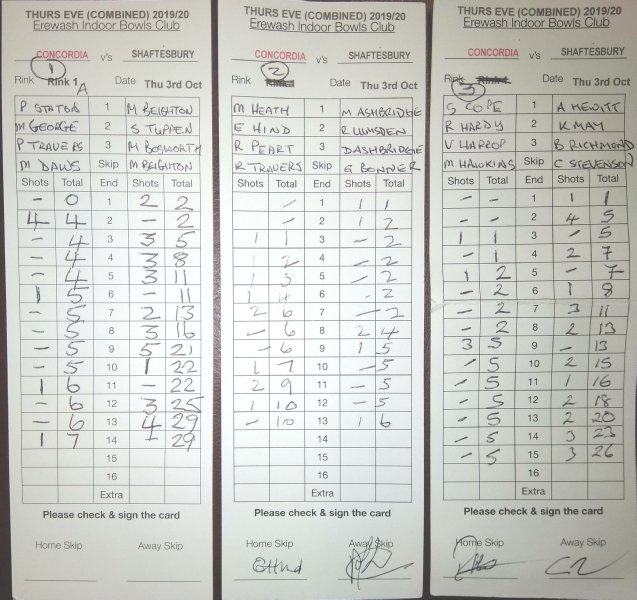 THURS EVE (COMBINED) 2019/20
Erewash Indoor Bowls Club
CONCORDIA v's SHAFTESBURY
1
Rink Rink 1 A Date Thu 3rd Oct
P STATON 1 M BEIGHTON
M GEORGE 2 S TUPPEN
P TRAVERS 3 M BOSWORTH
M DAWS Skip M BEIGHTON
Shots Total End Shots Total
- 0 1 2 2
4 4 2 - 2
- 4 3 3 5
- 4 4 3 8
- 4 5 3 11
1 5 6 - 11
- 5 7 2 13
- 5 8 3 16
- 5 9 5 21
- 5 10 1 22
1 6 11 - 22
- 6 12 3 25
- 6 13 4 29
1 7 14 - 29
15
16
Extra
Please check & sign the card
Home Skip Away Skip
THURS EVE (COMBINED) 2019/20
Erewash Indoor Bowls Club
CONCORDIA v's SHAFTESBURY
2
Rink Date Thu 3rd Oct
M HEATH 1 M ASHBRIDGE
E HIND 2 R LUMSDEN
R PEART 3 DASHBRIDGE
R TRAVERS Skip G BONNER
Shots Total End Shots Total
- 1 1 1
- 2 1 2
1 1 3 - 2
1 2 4 - 2
1 3 5 - 2
1 4 6 - 2
2 6 7 - 2
- 6 8 2 4
- 6 9 1 5
1 7 10 - 5
2 9 11 - 5
1 10 12 - 5
- 10 13 1 6
14
15
16
Extra
Please check & sign the card
Home Skip Away Skip
EHind
THURS EVE (COMBINED) 2019/20
Erewash Indoor Bowls Club
CONCORDIA v's SHAFTESBURY
3
Rink Date Thu 3rd Oct
S COPE 1 A HEWITT
R HARDY 2 K MAY
V HARROP 3 B RICHMOND
M HAWKINS Skip C STEVENSON
Shots Total End Shots Total
- - 1 1 1
- - 2 4 5
1 1 3 - 5
- 1 4 2 7
1 2 5 - 7
- 2 6 1 8
- 2 7 3 11
- 2 8 2 13
3 5 9 - 13
- 5 10 2 15
- 5 11 1 16
- 5 12 2 18
- 5 13 2 20
- 5 14 3 23
- 5 15 3 26
16
Extra
Please check & sign the card
Home Skip Away Skip